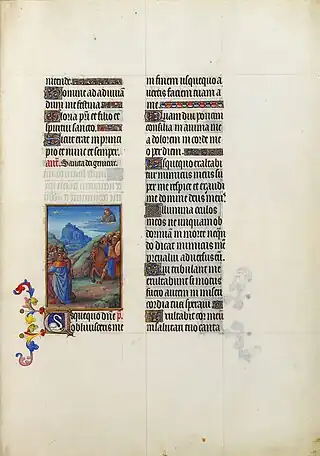 ntende.
Domine ad adiuvan
dum me festina
Gloria pri et filio et
spiritui sancto.
Sicut erat in princi
pio et nunc et semper.
ant. Sana dne
Usquequo dne p.
oblivisceris me
in finem usquequo a
vertis faciem tuam a
me.
Quam diu ponam
consilia in anima me
a dolorem in corde me
o per diem
Usquequo exaltabi
tur inimicus meus su
per me respice et exaudi
me domine deus meus
Illumina oculos
meos ne unquam ob
dormiam in morte neqn
do dicat inimicus me
prevalui adversus eu
Qui tribulant me
exultabunt si motus
fuero autem in miseri
cordia tua speravi
Exultabit cor meu
in salutari tuo canta